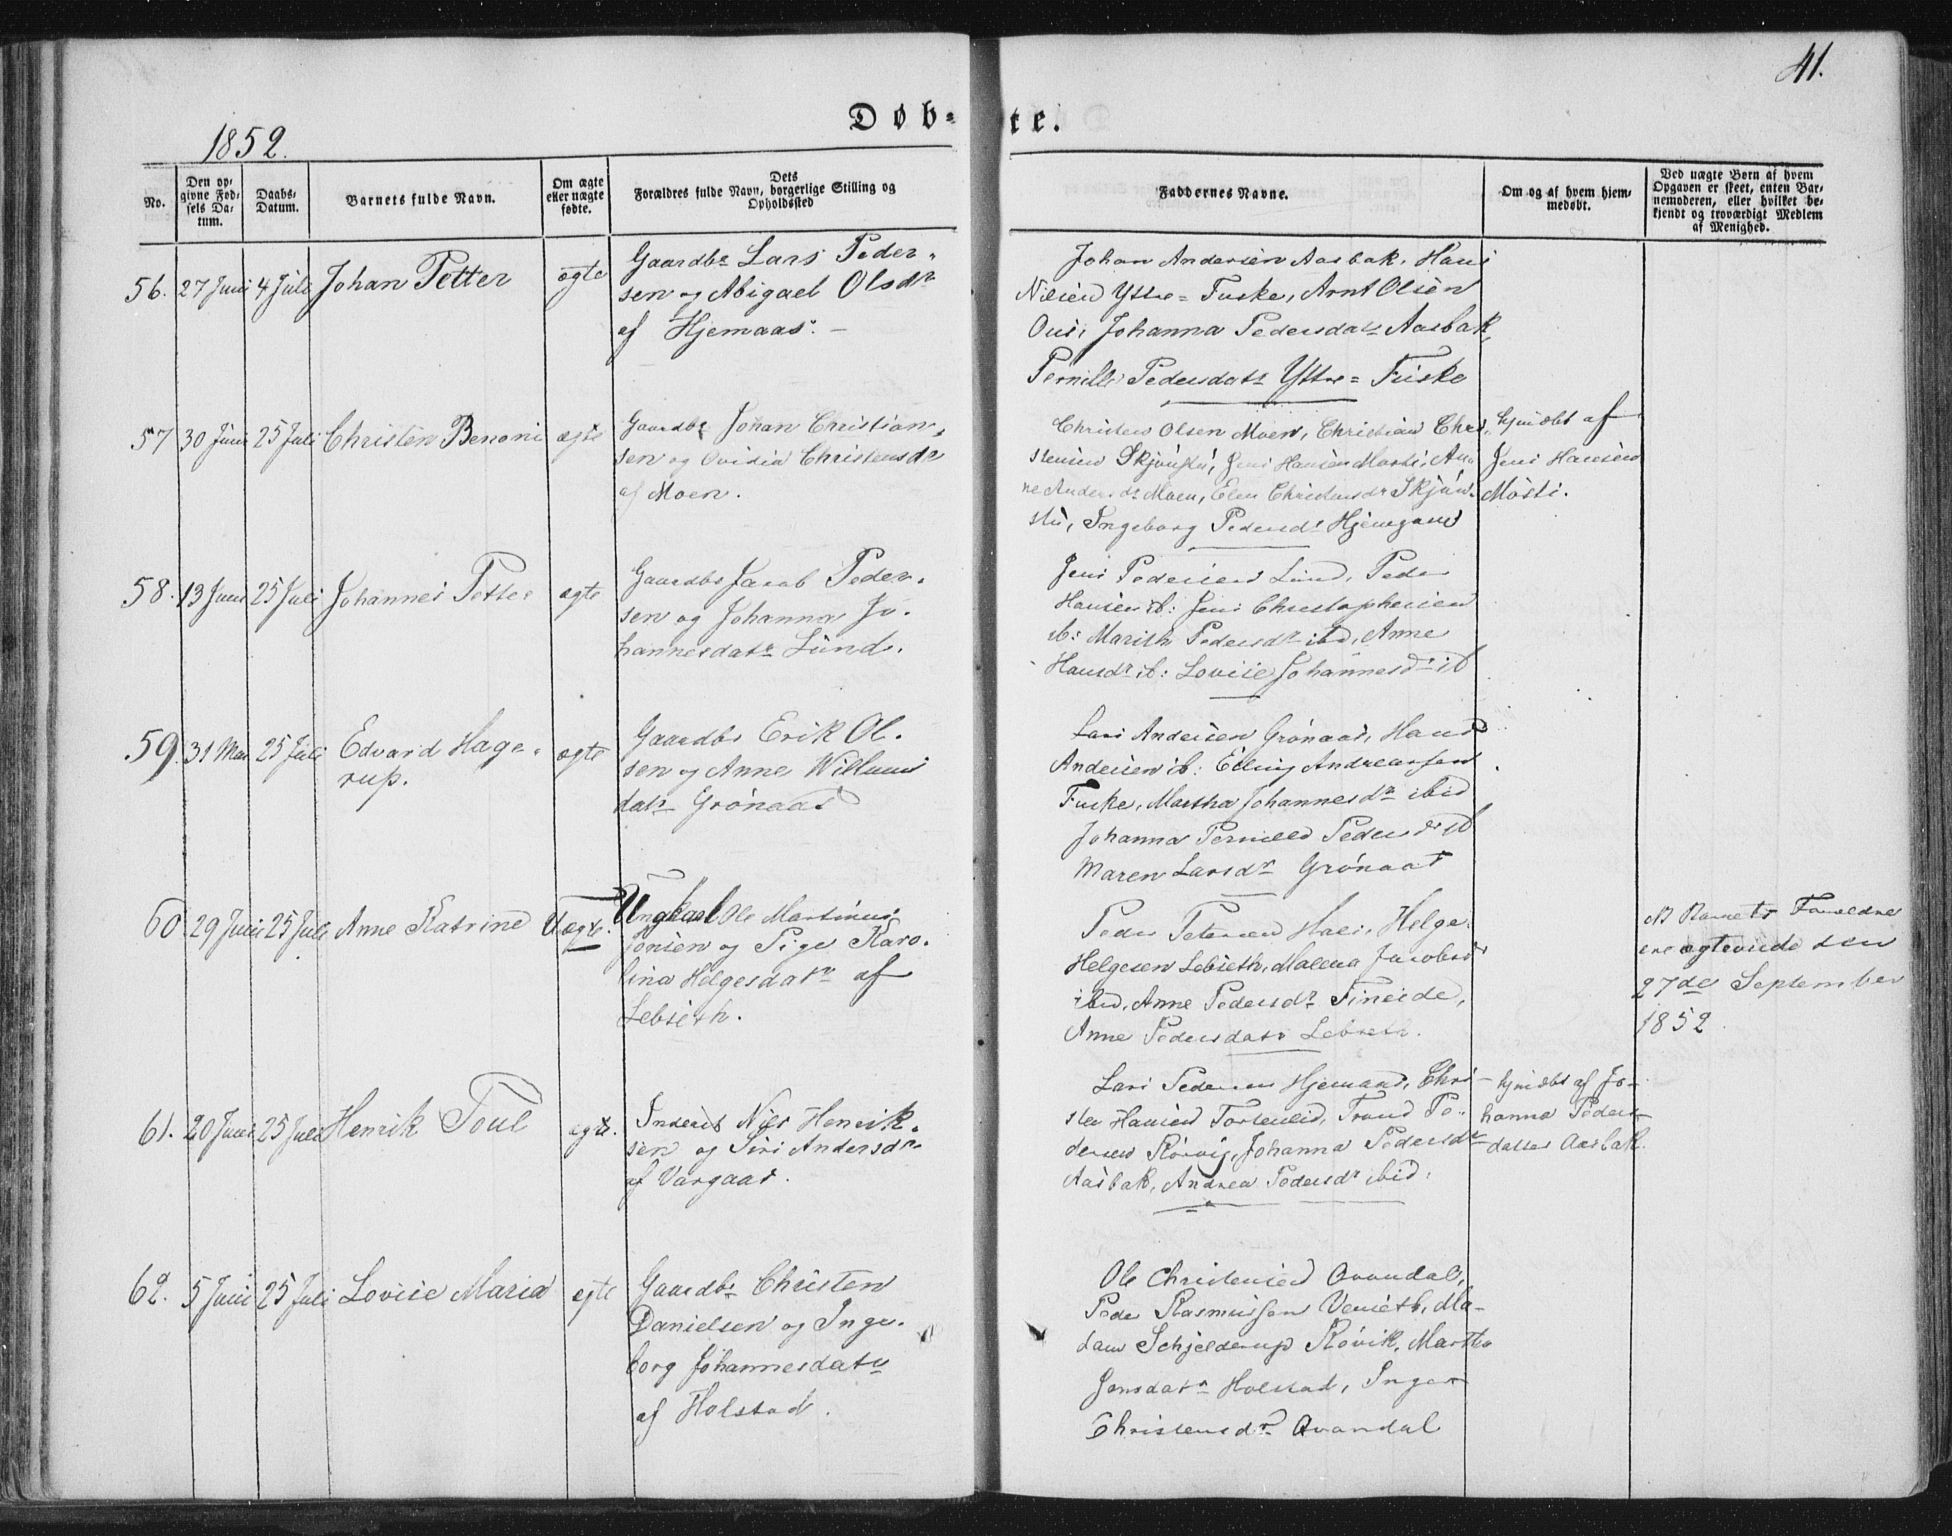 41.
Døb-te.
1852.
No.
Den op-
givne Fød-
sels Da-
tum.
Daabs-
Datum.
Barnets fulde Navn.
Om ægte
eller uægte
fødte.
Dets
Forældres fulde Navn, borgerlige Stilling og
Opholdssted
Faddernes Navne.
Om og af hvem hjem-
medøbt.
Ved uægte Børn af hvem
Opgaven er skeet, enten Bar-
nemoderen, eller hvilket be-
kjendt og troværdigt Medlem
af Menighed.
56. 27 Juni 4 Juli Johan Petter ægte
Gaardbr Lars Peder-
sen og Abigael Olsdr
af Hjemaas.
Johan Andersen Aasbak, Hans
Nilsen Yttre=Fuske, Arnt Olsen
Ous, Johanna Pedersdatr Aasbak,
Pernille Pedersdatr Yttre=Fuske
57 30 Juni 25 Juli Christen Benoni ægte
Gaardbr Johan Christian-
sen og Ovidia Christensdr
af Moen.
Christen Olsen Moen, Christian Chri-
stensen Skjønstu, Jens Hansen Mosti, An-
ne Andersdr Moen, Elen Christensdr Skjøn-
stu, Ingeborg Pedersdr Hjemgam
hjmdbt af
Jens Hansen
Mosti.
58. 13 Juni 25 Juli Johannes Petter ægte
Gaardbr Jacob Peder-
sen og Johanna Jo-
hannesdatr Lund.
Jens Pedersen Lund, Peder
Hansen ib: Jens Christophersen
ib: Marith Pedersdr ibd, Anne
Hansdr ib: Lovise Johannesdr ib
59. 31 Mai 25 Juli Edvard Hage-
rup. ægte
Gaardbr Erik Ol-
sen og Anne Willums
datr Grønaas
Lars Andersen Grønaas, Hans
Andersen ib: Eding Andreassen
Fuske, Martha Johannesdr ibid
Johanna Pernille Pedersdr ib
Maren Larsdr Grønaas
60. 29 Juni 25 Juli Anne Katrine Uægte.
Ungkarl Ole Martinus
Jonsen og Pige Karo-
lina Helgesdatr af
Lebseth.
Peder Petersen Hals, Helge
Helgesen Lebseth, Malena Jacobsdr
ibid, Anne Pedersdr Fineide,
Anne Pedersdatr Lebseth.
NB Barnets Forældre
ere ægteviede den
27de September
1852.
61. 20 Juni 25 Juli Henrik Toul ægte.
Inderst Nils Henrik-
sen og Siri Andersdr
af Vargaas.
Lars Pedersen Hjemaas, Chri-
sten Hansen Tortenlid, Trond Pe-
dersen Rørvig, Johanna Pedersdr
Aasbak, Andrea Pedersdr ibid:
hjmdbt af Jo-
hanna Peders-
datter Aasbak.
62. 5 Juni 25 Juli Lovise Maria egte
Gaardbr Christen
Danielsen og Inge-
borg Johannesdatr
af Holstad.
Ole Christensen Qvandal,
Peder Rasmussen Venseth, Ma-
dam Schjelderup Røvik, Martha
Jensdatr Holstad, Inger
Christensdr Qvandal